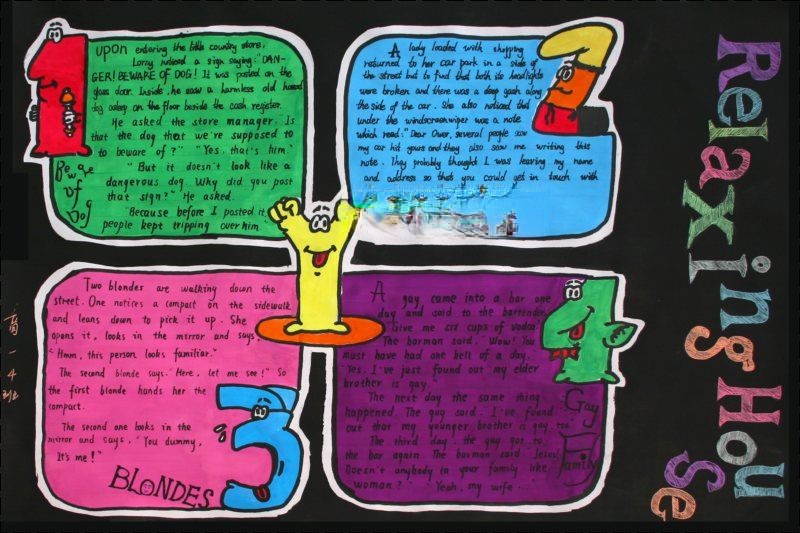 Relaxing House
UPON entering the little country store,
Larry noticed a sign saying: "DAN-
GER! BEWARE OF DOG! It was posted on the
glass door. Inside, he saw a harmless old hound
dog asleep on the floor beside the cash register.
He asked the store manager. Is
that the dog that we're supposed to
to beware of?" "Yes, that's him."
"But it doesn't look like a
dangerous dog. Why did you post
that sign?" He asked.
"Because before I posted it,
people kept tripping over him.
Beware
of
Dog
A lady loaded with shopping
returned to her car park in a side of
the street but to find that both its headlights
were broken and there was a deep gash along
the side of the car. She also noticed that
under the windscreenwiper was a note
which read: "Dear Owner, several people saw
my car hit yours and they also saw me writing this
note. They probably thought I was leaving my name
and address so that you could get in touch with
Two blondes are walking down the
street. One notices a compact on the sidewalk
and leans down to pick it up. She
opens it, looks in the mirror and says,
"Hmm, this person looks familiar."
The second blonde says. "Here, let me see!" So
the first blonde hands her the
compact.
The second one looks in the
mirror and says, "You dummy,
It's me!"
BLONDES
A gay came into a bar one
day and said to the bartender
"Give me six cups of vodca"
The barman said. "Wow! You
must have had one hell of a day."
"Yes. I've just found out my elder
brother is gay."
The next day the same thing
happened. The guy said. I've found
out that my younger brother is gay too
The third day, the guy got to
the bar again. The barman said Jesus!
Doesn't anybody in your family like
woman?" "Yeah, my wife...
Gay
Family